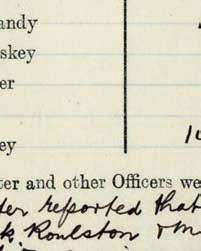 andy
skey
er
ey
10
ter and other Officers we
der reported that
k Roulston & m